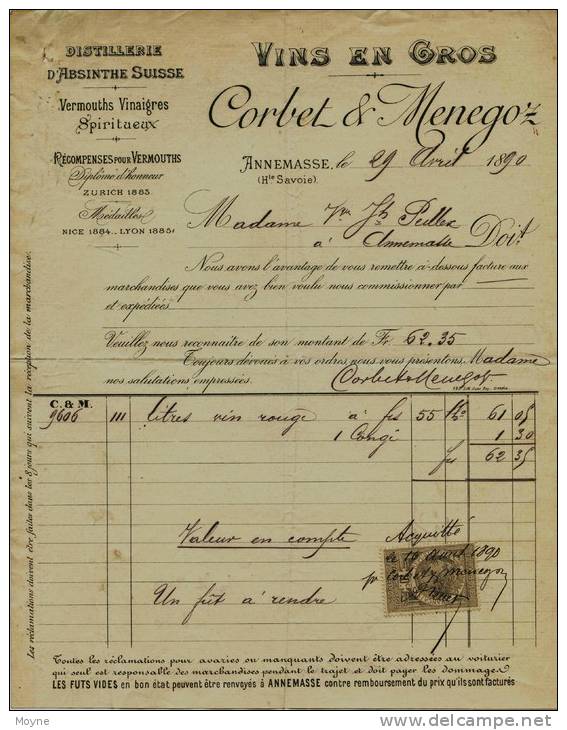 DISTILLERIE
D'ABSINTHE SUISSE
Vermouths Vinaigres
Spiritueux
RÉCOMPENSES POUR VERMOUTHS
Diplôme d'honneur
ZURICH 1883
Médailles
NICE 1884.. LYON 1885
VINS EN GROS
Corbet & Menegoz
ANNEMASSE, le 29 Avril 1890
(Hte Savoie)
Madame Vve Jh
à Annemasse Doit
Nous avons l'avantage de vous remettre ci-dessous facture aux
marchandises que vous avez bien voulu nous commissionner par
et expédiées
Veuillez nous reconnaître de son montant de Fr. 62.35
Toujours dévoués à vos ordres, nous vous présentons, Madame
nos salutations empressées.
Corbet & Menegoz
C. & M.
9606 111 litres vin rouge à fcs 55 61 05
1 Congé 1 30
fcs 62 35
Valeur en compte
Acquitté
le 10 Aout 1890
pr Corbet & Menegoz
Un fût à rendre
Les réclamations doivent être faites dans les 8 jours qui suivent la réception de la marchandise.
Toutes les réclamations pour avaries ou manquants doivent être adressées au voiturier
qui seul est responsable des marchandises pendant le trajet et doit payer les dommages
LES FUTS VIDES en bon état peuvent être renvoyés à ANNEMASSE contre remboursement du prix qu'ils sont facturés
Moyne
www.delcampe.net